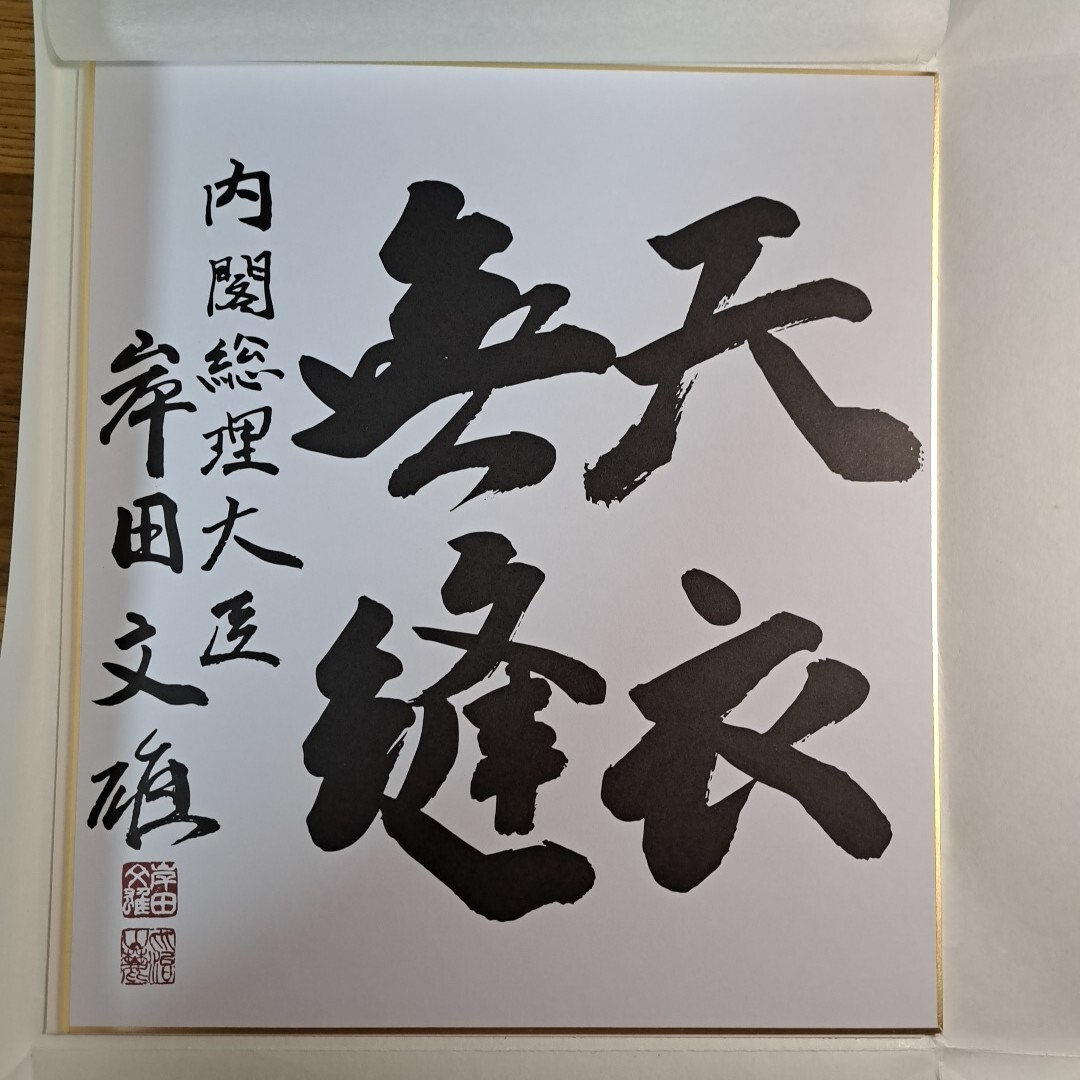 天衣
無縫
内閣総理大臣
岸田文雄
岸田
文雄